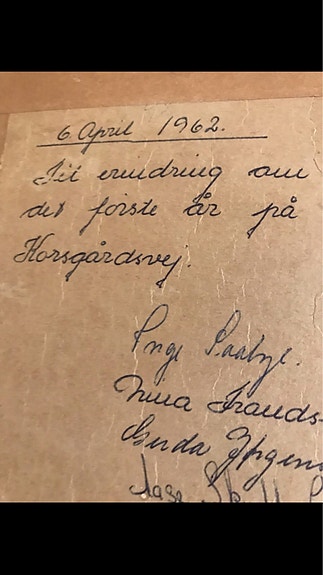 6 April 1962.
Til erindring om
det første år på
Korsgårdsvej.
Inge Saabye.
Nina Frands-
Gerda